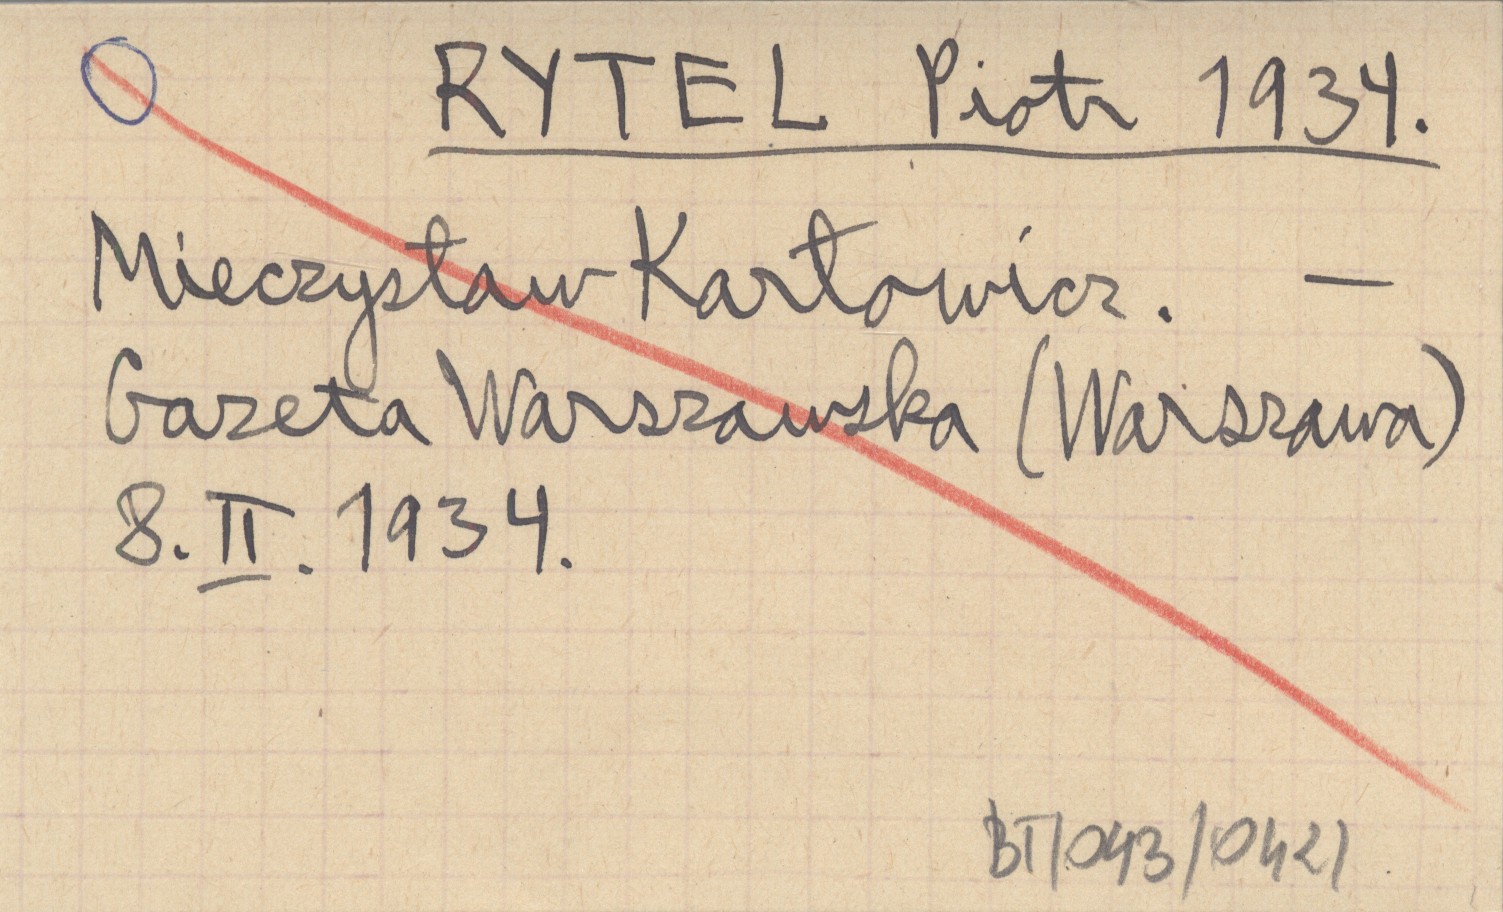 RYTEL Piotr 1934.
Mieczysław Karłowicz. —
Gazeta Warszawska (Warszawa)
8. II. 1934.
BT/043/0421